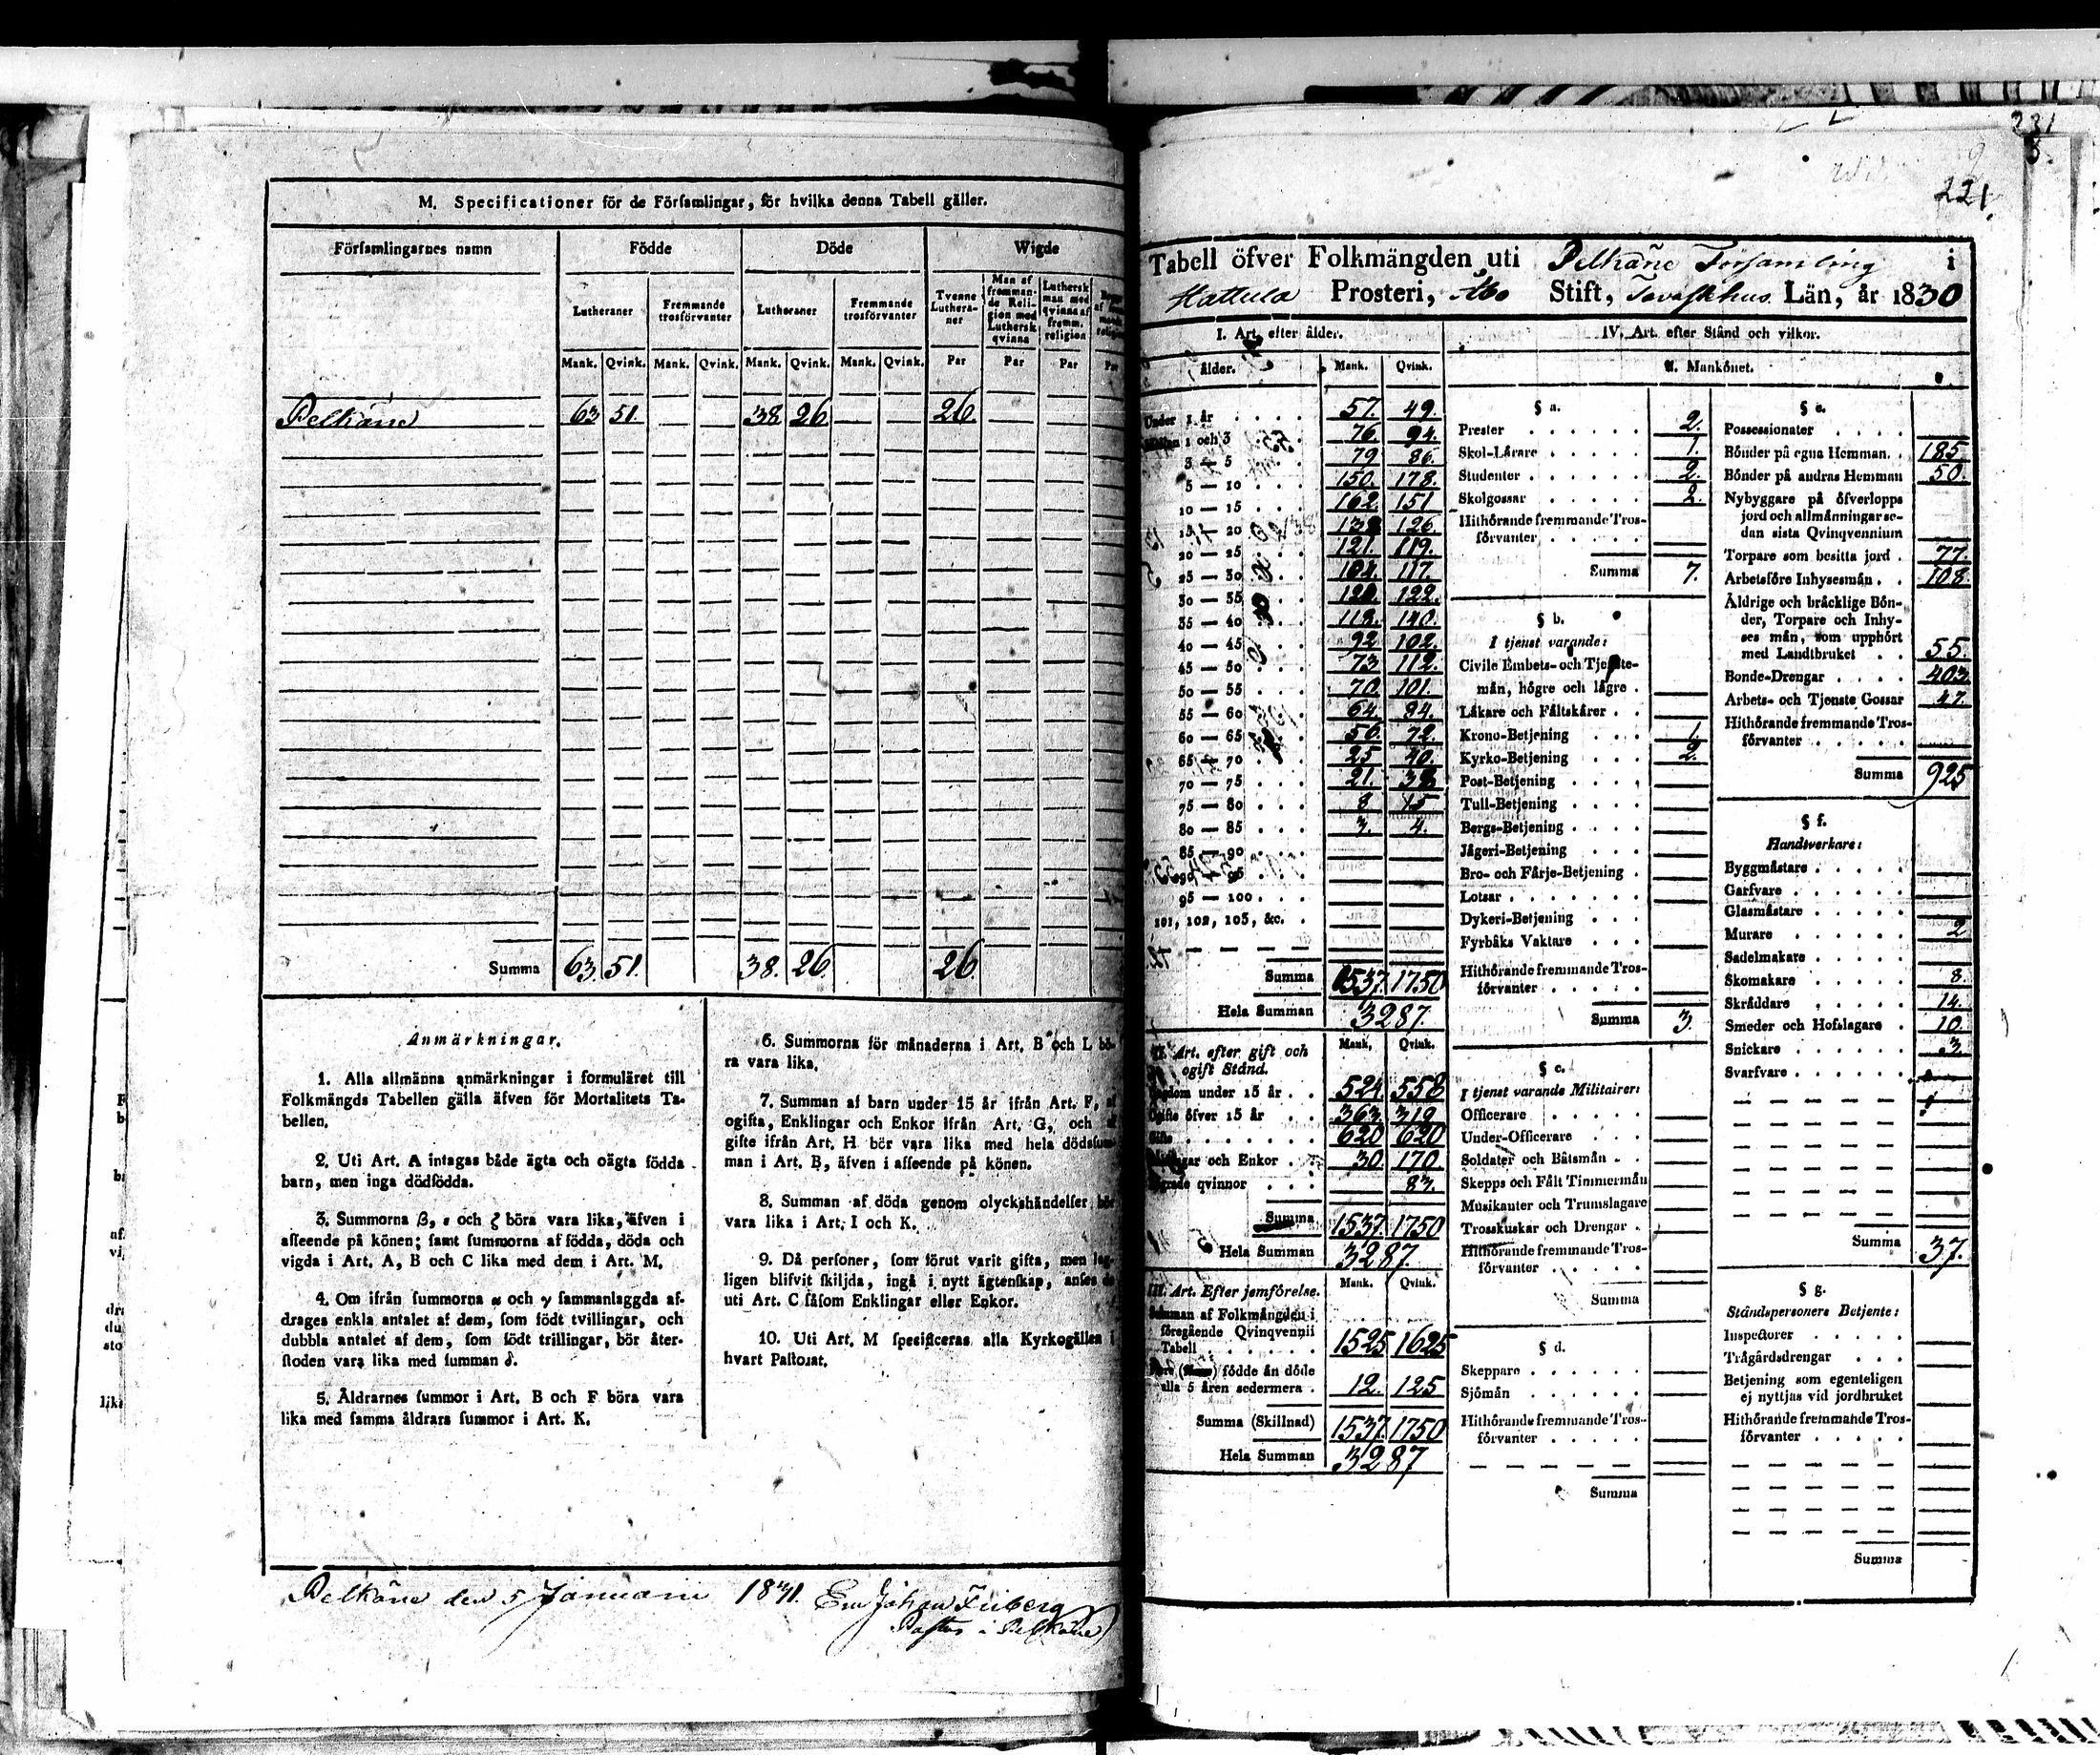 M. Specificationer för de Församlingar, för hvilka denna Tabell gäller.
Församlingarnes namn Födde Döde Wigde
Lutheraner Fremmande trosförvanter Lutheraner Fremmande trosförvanter Tvenne Lutheraner Man af fremmande Religion med Luthersk qvinna Luthersk man med qvinna af fremm. religion
Mank. Qvink. Mank. Qvink. Mank. Qvink. Mank. Qvink. Par Par Par
Pelkäne 63 51. 38 26 26.
Summa 63. 51. 38. 26. 26.
Anmärkningar.
1. Alla allmänna anmärkningar i formuläret till
Folkmängds Tabellen gälla äfven för Mortalitets Ta-
bellen.
2. Uti Art. A intagas både ägta och oägta födda
barn, men inga dödfödda.
3. Summorna β, ε och ζ böra vara lika, äfven i
afseende på könen; samt summorna af födda, döda och
vigda i Art. A, B och C lika med dem i Art. M.
4. Om ifrån summorna α och γ sammanlaggda af-
drages enkla antalet af dem, som födt tvillingar, och
dubbla antalet af dem, som födt trillingar, bör åter-
stoden vara lika med summan δ.
5. Åldrarnes summor i Art. B och F böra vara
lika med samma åldrars summor i Art. K.
6. Summorna för månaderna i Art. B och L bö-
ra vara lika.
7. Summan af barn under 15 år ifrån Art. F, af
ogifta, Enklingar och Enkor ifrån Art. G, och af
gifte ifrån Art. H bör vara lika med hela dödssum-
man i Art. B, äfven i afseende på könen.
8. Summan af döda genom olyckshändelser bör
vara lika i Art. I och K.
9. Då personer, som förut varit gifta, men lag-
ligen blifvit skiljda, ingå i nytt ägtenskap, anses de
uti Art. C såsom Enklingar eller Enkor.
10. Uti Art. M specificeras alla Kyrkogällen i
hvart Pastorat.
Pelkäne den 5 Januarii 1831. Johan Friberg
Pastor i Pelkäne
231
221.
Tabell öfver Folkmängden uti Pelkäne Församling i
Hattula Prosteri, Åbo Stift, Tavastehus Län, år 1830
I. Art. efter ålder.
Ålder. Mank. Qvink.
Under 1 år 57. 49.
Mellan 1 och 3 76. 94.
3 — 5 79 86.
5 — 10 150. 178.
10 — 15 162. 151
15 — 20 138 126
20 — 25 121. 119.
25 — 30 104. 117.
30 — 35 120. 122.
35 — 40 118. 140.
40 — 45 92 102.
45 — 50 73 112.
50 — 55 70. 101.
55 — 60 64. 84.
60 — 65 56. 72.
65 — 70 25 40.
70 — 75 21. 38
75 — 80 8 15
80 — 85 3. 4.
85 — 90
90 — 95
95 — 100
101, 102, 103, &c.
Summa 1537. 1750
Hela Summan 3287.
II. Art. efter gift och ogift Stånd. Mank. Qvink.
Ungdom under 15 år 524. 558
Ogifte öfver 15 år 363. 319.
Gifte 620 620
Enklingar och Enkor 30. 170.
qvinnor 83.
Summa 1537. 1750
Hela Summan 3287.
III. Art. Efter jemförelse. Mank. Qvink.
Summan af Folkmängden i
föregående Qvinqvennii
Tabell 1525 1625
födde än döde
alla 5 åren sedermera 12. 125
Summa (Skillnad) 1537. 1750
Hela Summan 3287
IV. Art. efter Stånd och vilkor.
A. Mankönet.
§ a.
Prester 2.
Skol-Lärare 1.
Studenter 2.
Skolgossar 2.
Hithörande fremmande Tros-
förvanter
Summa 7.
§ b.
I tjenst varande:
Civile Embets- och Tjenste-
män, högre och lägre
Läkare och Fältskärer
Krono-Betjening 1.
Kyrko-Betjening 2.
Post-Betjening
Tull-Betjening
Bergs-Betjening
Jägeri-Betjening
Bro- och Färje-Betjening
Lotsar
Dykeri-Betjening
Fyrbåks Vaktare
Hithörande fremmande Tros-
förvanter
Summa 3.
§ c.
I tjenst varande Militairer:
Officerare
Under-Officerare
Soldater och Båtsmän
Skepps och Fält Timmermän
Musikanter och Trumslagare
Trosskuskar och Drengar
Hithörande fremmande Tros-
förvanter
Summa
§ d.
Skeppare
Sjömän
Hithörande fremmande Tros-
förvanter
Summa
§ e.
Possessionater
Bönder på egna Hemman 185.
Bönder på andras Hemman 50.
Nybyggare på öfverlopps
jord och allmänningar se-
dan sista Qvinqvennium
Torpare som besitta jord 77.
Arbetsföre Inhysesmän 108.
Åldrige och bräcklige Bön-
der, Torpare och Inhy-
ses män, som upphört
med Landtbruket 55.
Bonde-Drengar 403.
Arbets- och Tjenste Gossar 47.
Hithörande fremmande Tros-
förvanter
Summa 925
§ f.
Handtverkare:
Byggmästare
Garfvare
Glasmästare
Murare 2
Sadelmakare
Skomakare 8.
Skräddare 14.
Smeder och Hofslagare 10.
Snickare 3.
Svarfvare
Summa 37.
§ g.
Ståndspersoners Betjente:
Inspectorer
Trägårdsdrengar
Betjening som egenteligen
ej nyttjas vid jordbruket
Hithörande fremmande Tros-
förvanter
Summa